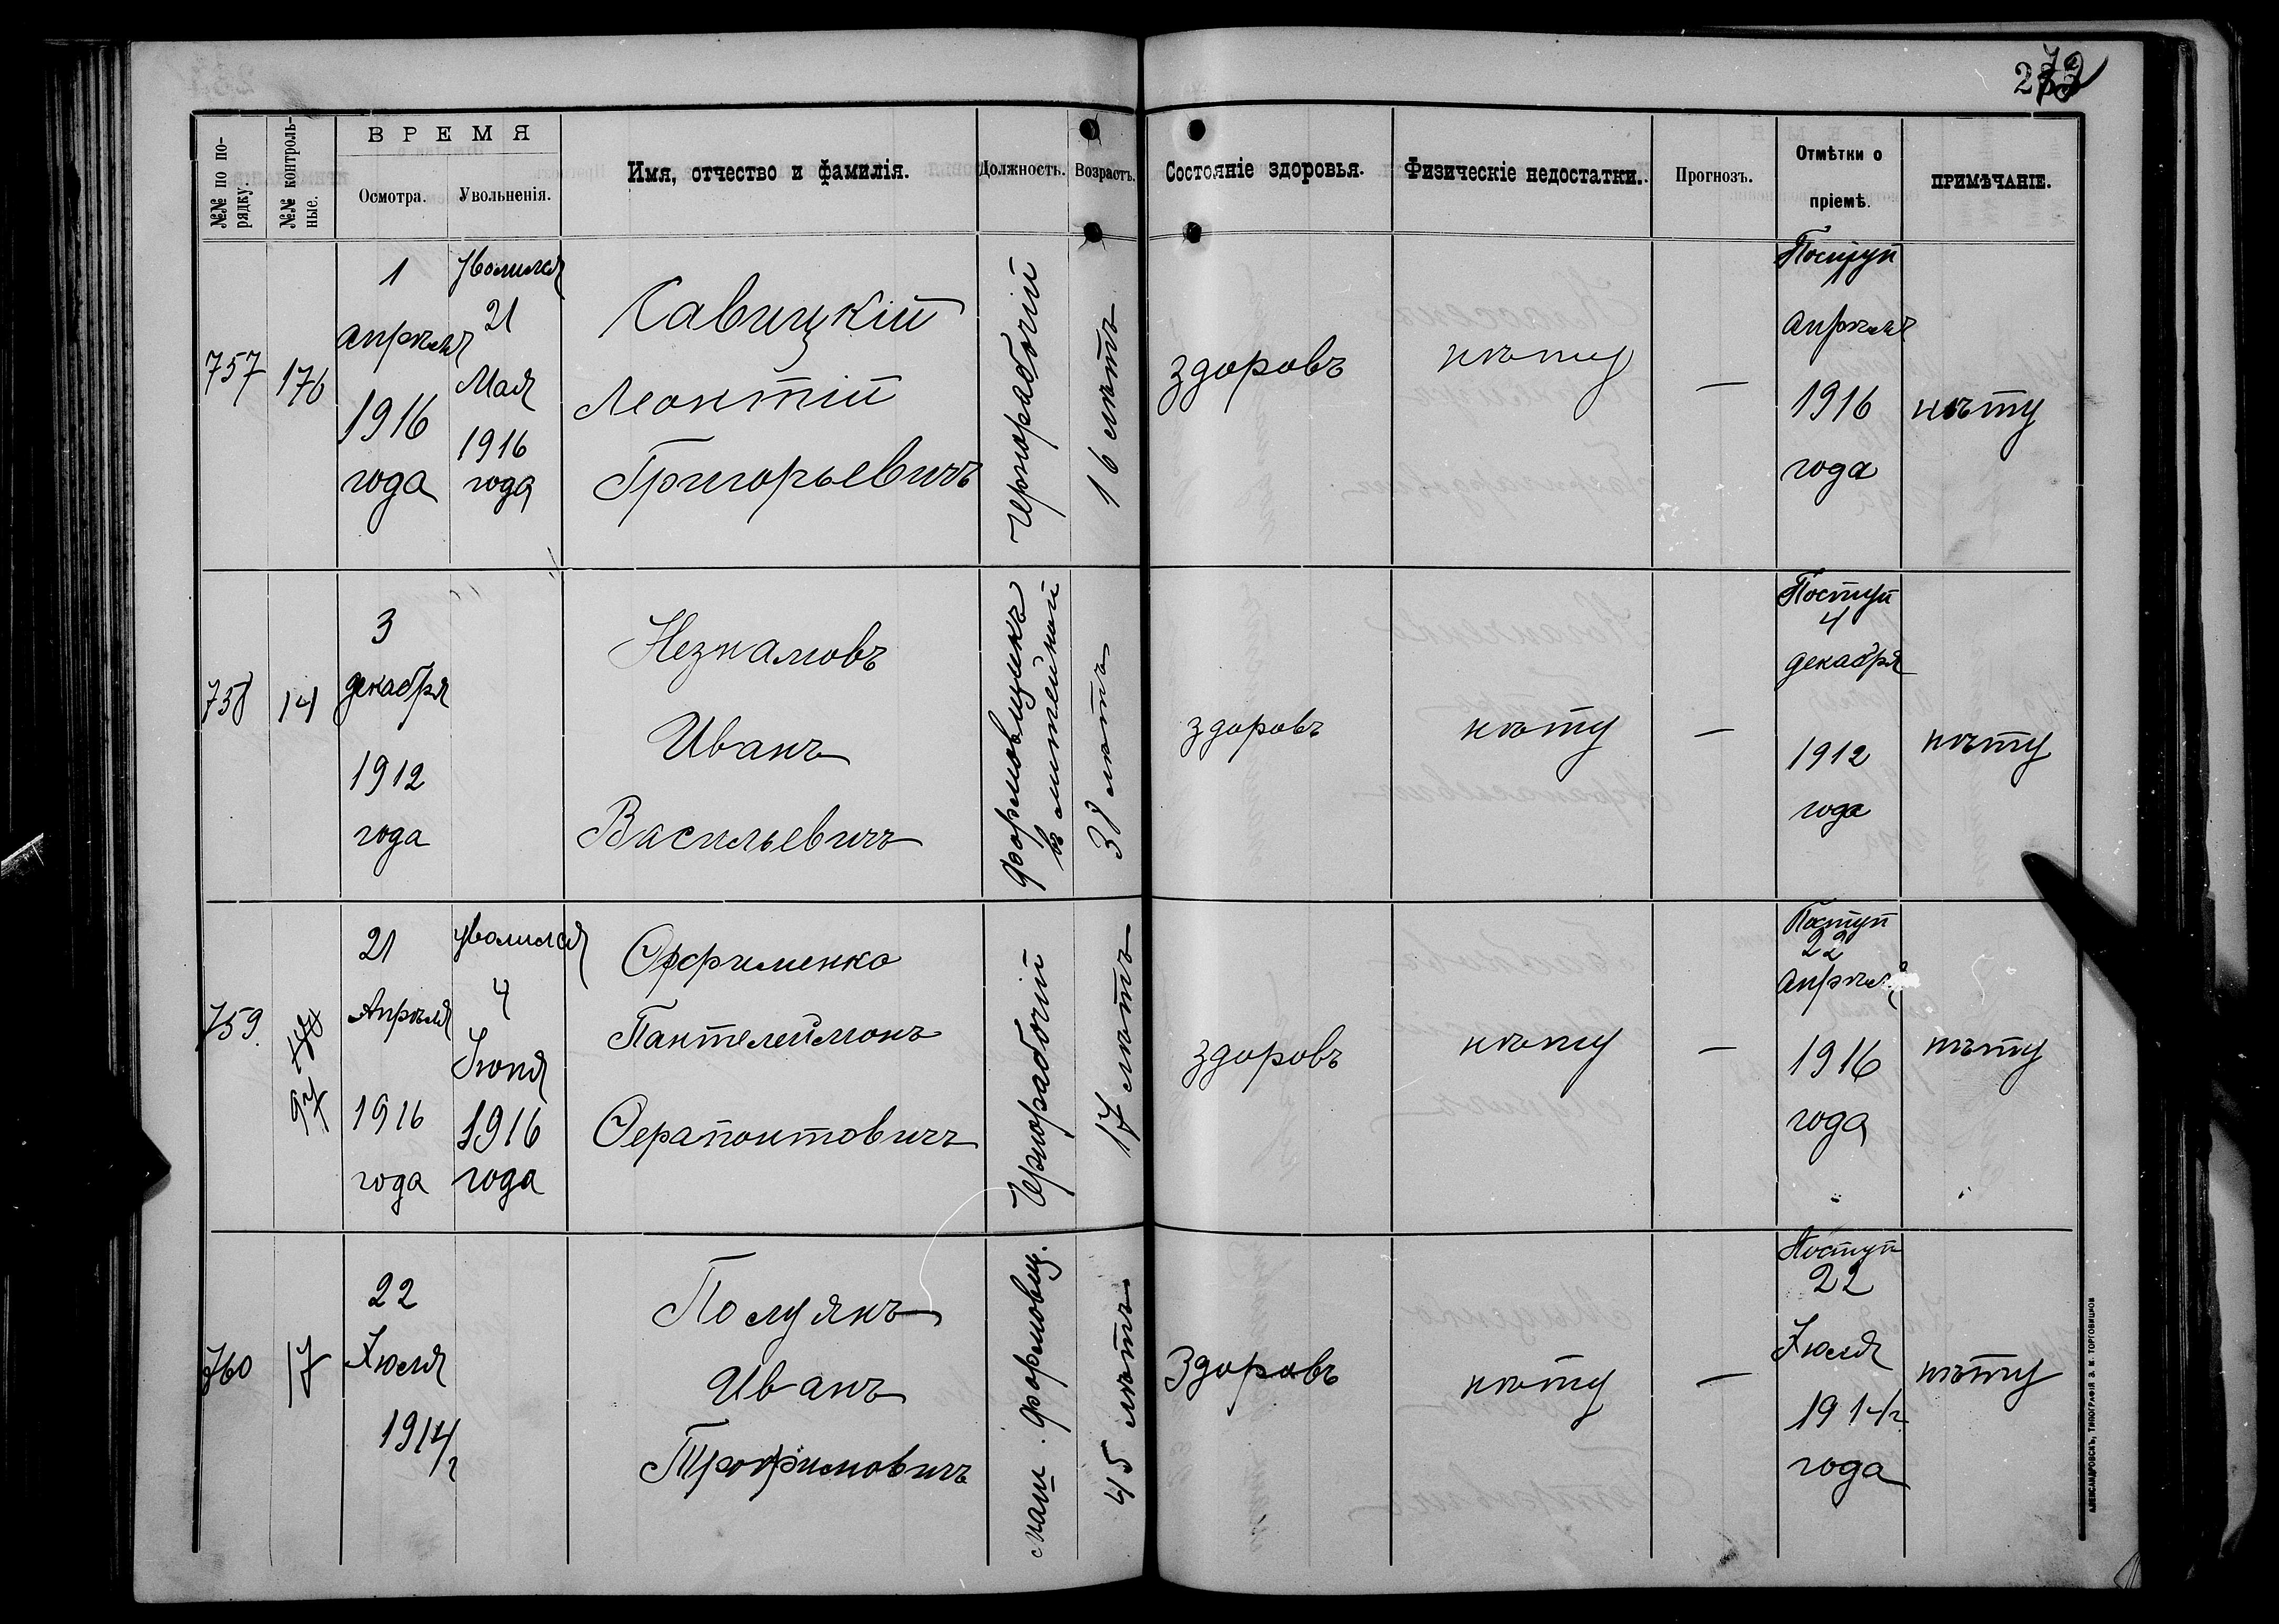 ВРЕМЯ
№№ по по-
рядку.
№№ контроль-
ные.
Осмотра.
Увольненія.
Имя, отчество и фамилія.
Должность.
Возрастъ.
Состояніе здоровья.
Физическіе недостатки.
Прогнозъ.
Отмѣтки о
пріемѣ.
ПРИМѢЧАНІЕ.
757
176
1
апрѣля
1916
года
уволился
21
Мая
1916
года
Савицкій
Леонтій
Григорьевичъ
чернорабочій
16 лѣтъ
здоровъ
нѣту
—
Поступ
апрѣля
1916
года
нѣту
758
14
3
декабря
1912
года
Незнамовъ
Иванъ
Васильевичъ
формовщикъ
въ литейной
38 лѣтъ
здоровъ
нѣту
—
Поступ
4
декабря
1912
года
нѣту
759.
97
21
Апрѣля
1916
года
уволился
4
Іюня
1916
года
Пантелеймонъ
Ферапонтовичъ
Чернорабочій
17 лѣтъ
здоровъ
нѣту
—
Поступ
22
апрѣля
1916
года
нѣту
760
17
22
Іюля
1914/г
Полуянъ
Иванъ
Трофимовичъ
маш. формовщ.
45 лѣтъ
Здоровъ
нѣту
—
Поступ
22
Іюля
1914/г.
года
нѣту
АЛЕКСАНДРОВСКЪ, ТИПОГРАФІЯ З. М. ТОРГОВИЦКОВ